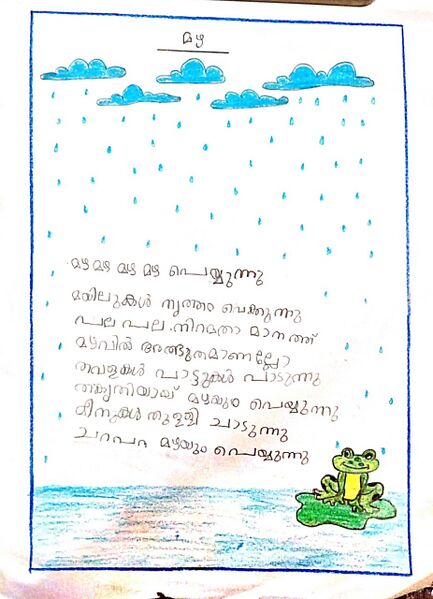 മഴ
മഴ മഴ മഴ മഴ പെയ്യുന്നു
മയിലുകൾ നൃത്തം വെക്കുന്നു
പല പല നിറമതാ മാനത്ത്
മഴവിൽ അത്ഭുതമാണല്ലോ
തവളകൾ പാട്ടുകൾ പാടുന്നു
തകൃതിയായ് മഴയും പെയ്യുന്നു
മീനുകൾ തുള്ളി ചാടുന്നു
ചറപറ മഴയും പെയ്യുന്നു